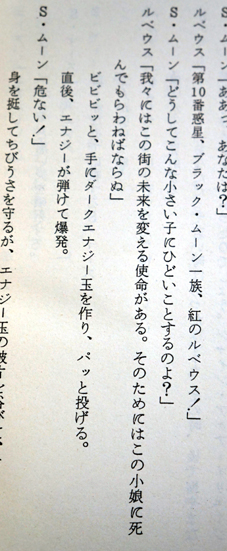 S・ムーン「ああっ、あなたは？」
ルベウス「第10番惑星、ブラック・ムーン一族、紅のルベウス！」
S・ムーン「どうしてこんな小さい子にひどいことするのよ？」
ルベウス「我々にはこの街の未来を変える使命がある。そのためにはこの小娘に死
んでもらわねばならぬ」
ビビビッと、手にダークエナジー玉を作り、バッと投げる。
直後、エナジーが弾けて爆発。
S・ムーン「危ない！」
身を挺してちびうさを守るが、エナジー玉の破片